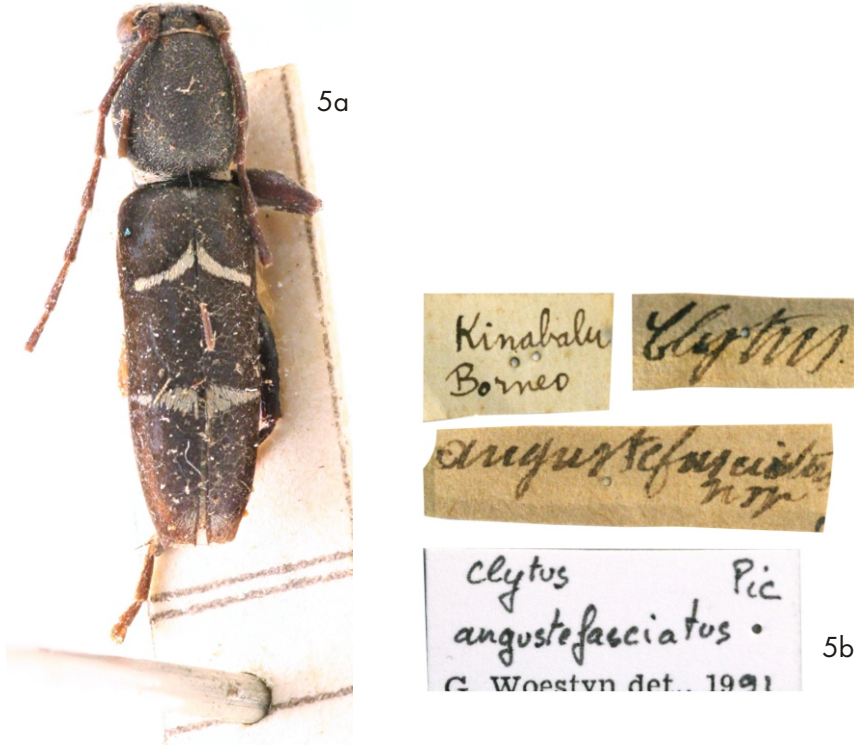 5a
Kinabalu
Borneo
Clytus.
angustefasciatus
n sp
Clytus Pic
angustefasciatus.
G. Woestyn det., 1991
5b